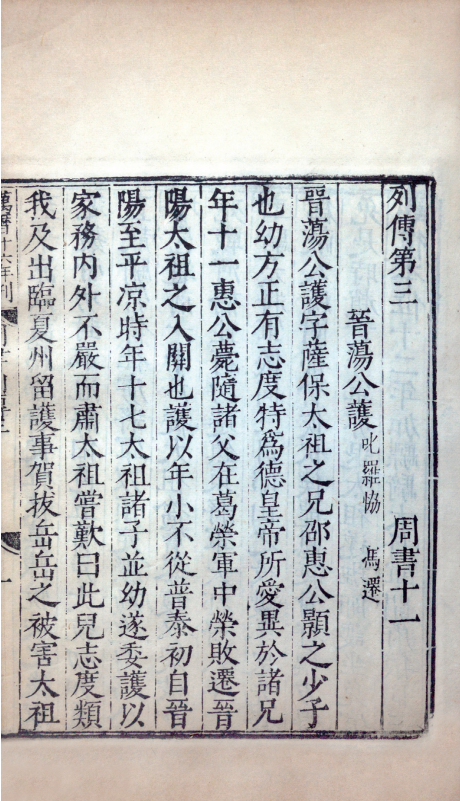 列傳第三 周書十一
晉蕩公護 叱羅協 馮遷
晉蕩公護字薩保太祖之兄邵惠公顥之少子
也幼方正有志度特爲德皇帝所愛異於諸兄
年十一惠公薨隨諸父在葛榮軍中榮敗遷晉
陽太祖之入關也護以年小不從普泰初自晉
陽至平涼時年十七太祖諸子並幼遂委護以
家務内外不嚴而肅太祖嘗歎曰此兒志度類
我及出臨夏州留護事賀拔岳岳之被害太祖